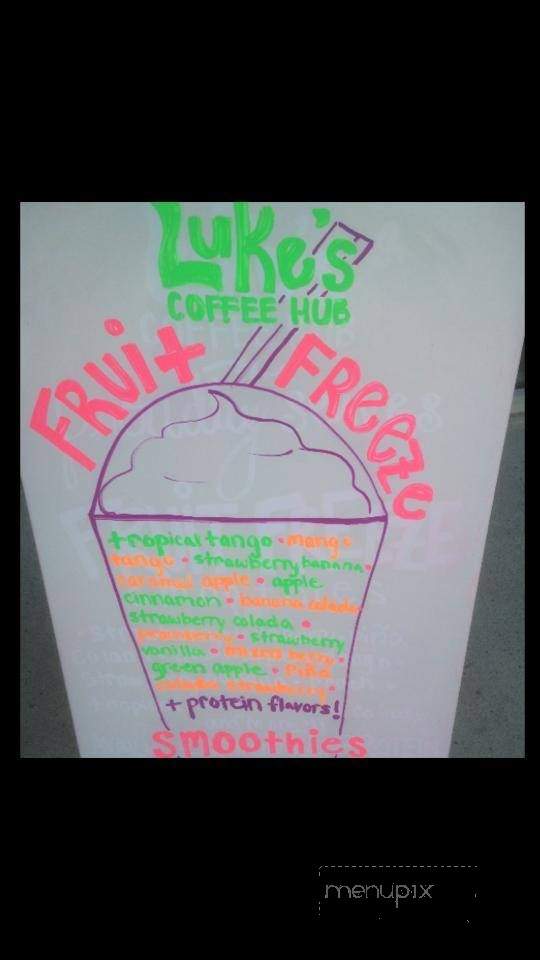 Luke's
COFFEE HUB
FRUit FReeze
tropical tango • mango
tango • strawberry banana •
caramel apple • apple
cinnamon • banana colada
strawberry colada •
strawberry
vanilla • mixed berry •
green apple • Piña
colada strawberry •
+ protein flavors!
smoothies
menupix